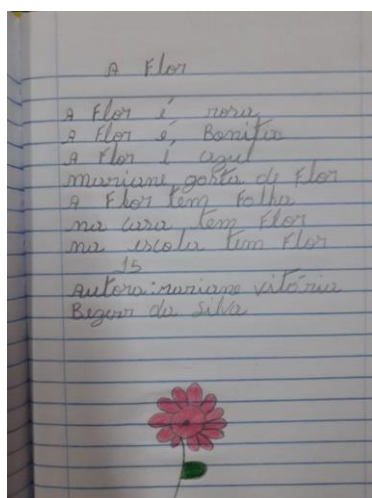 A Flor
A Flor é rosa
A Flor é Bonita
A Flor é azul
mariane gosta de Flor
A Flor tem Folha
na casa tem Flor
na escola tem Flor
15
autora: mariane vitória
da Silva